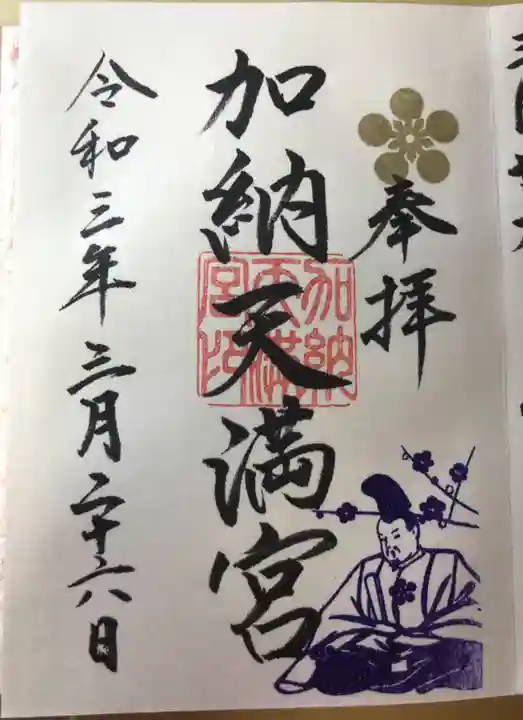 奉拝
加納天満宮
加納
天満
宮印
令和三年三月二十六日